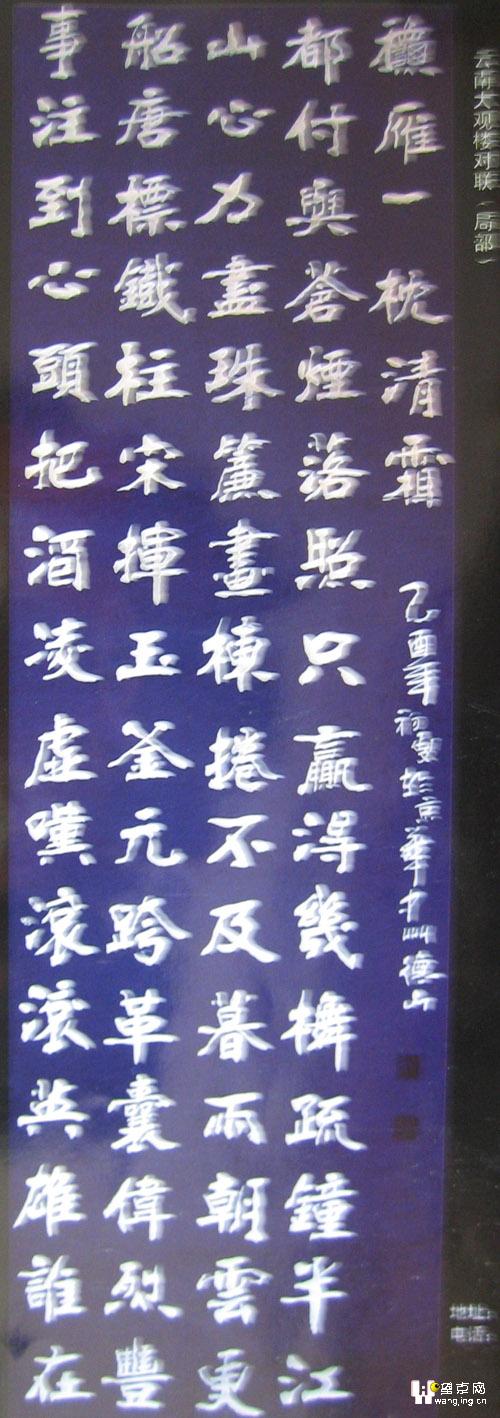 事注到心頭把酒凌虛嘆滾滾英雄誰在
船唐標鐵柱宋揮玉釜元跨革囊偉烈豐
山心力盡珠簾畫棟捲不及暮雨朝雲更
都付與蒼煙落照只贏得幾疏鐘半江
雁一枕清霜
乙酉年初夏於京華德山
云南大观楼对联（局部）
地址：
电话：
望京网
wangjing.cn